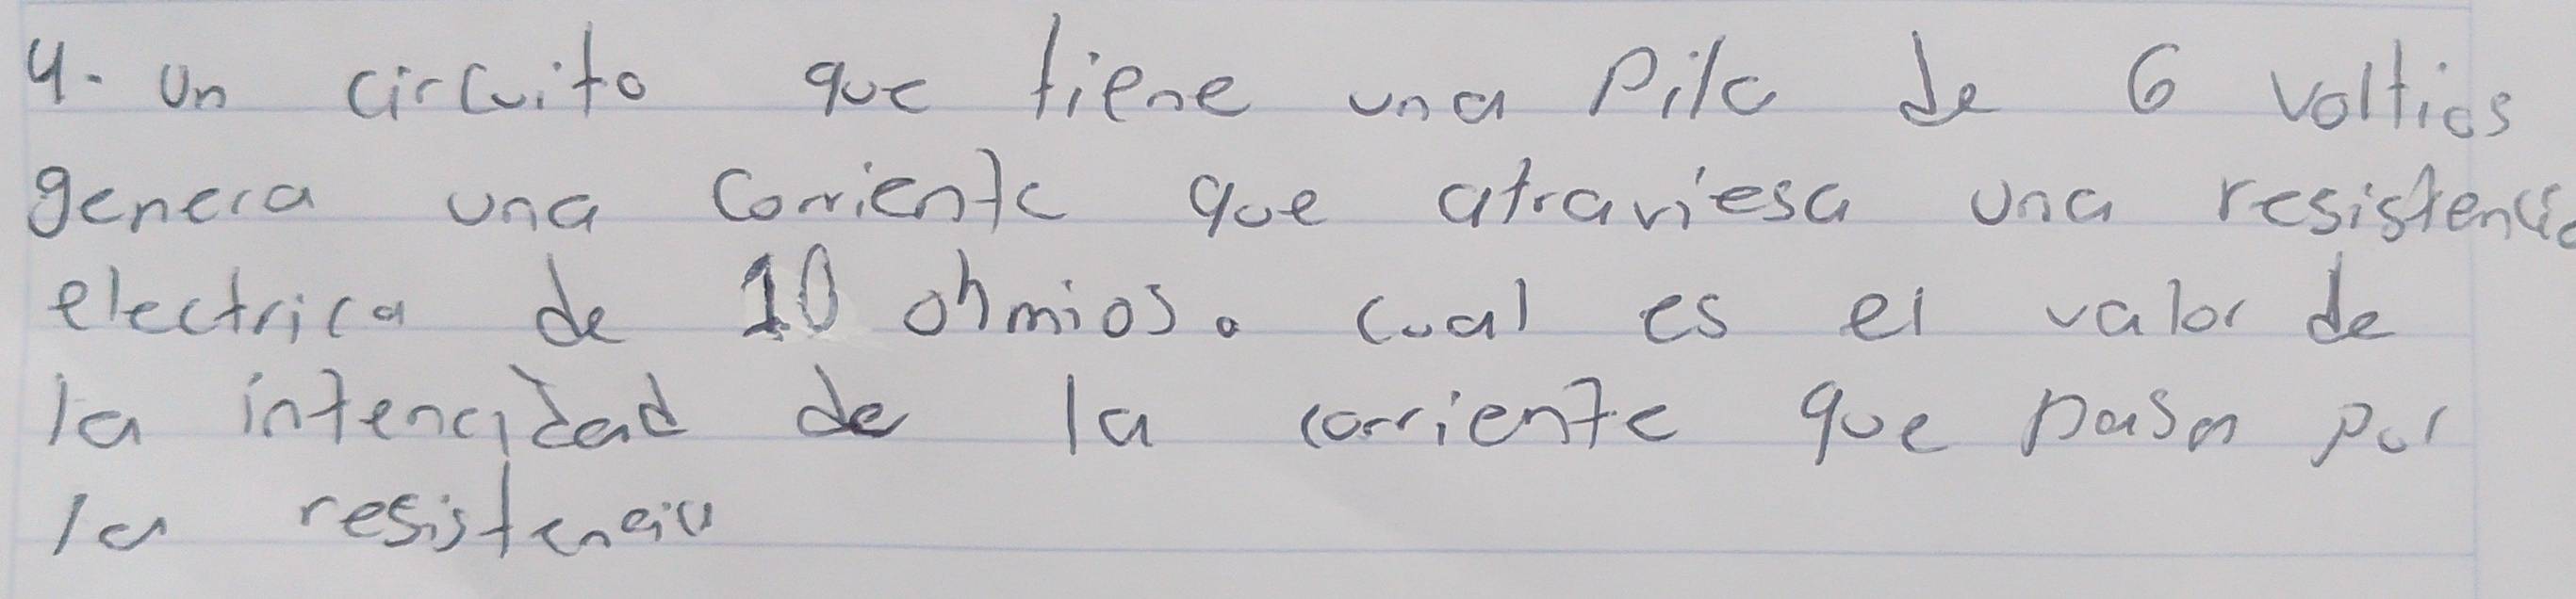 4. Un circuito que tiene una Pila de 6 voltios
genera una corriente que atraviesa una resistencia
electrica de 10 ohmios. cual es el valor de
la intencidad de la corriente que pasa por
la resistencia